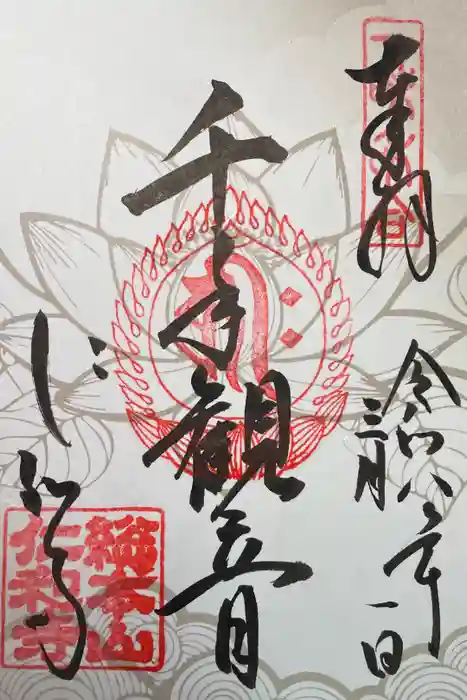 奉拝
令和八年
三月一日
千手観音
仁和寺
総本山
仁和寺